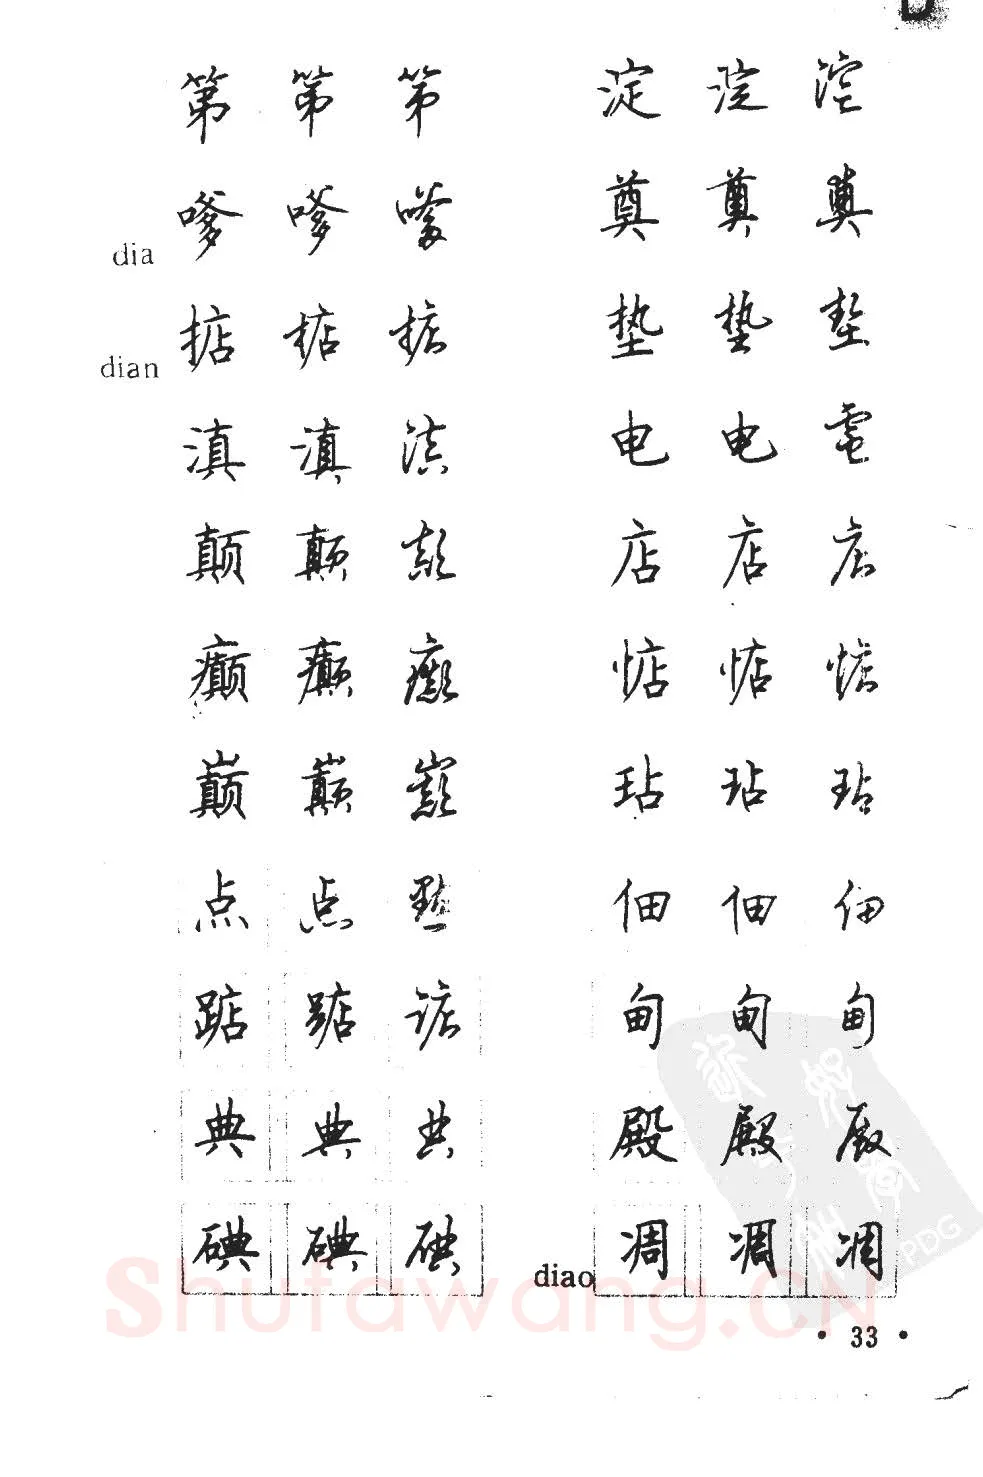 D
第 第 第
dia 嗲 嗲 嗲
dian 掂 掂 掂
滇 滇 滇
颠 颠 颠
癫 癫 癫
巅 巅 巅
点 点 點
踮 踮 踮
典 典 典
碘 碘 碘
淀 淀 淀
奠 奠 奠
垫 垫 垫
电 电 電
店 店 店
惦 惦 惦
玷 玷 玷
佃 佃 佃
甸 甸 甸
殿 殿 殿
diao 凋 凋 凋
PDG
Shufawang.CN
• 33 •